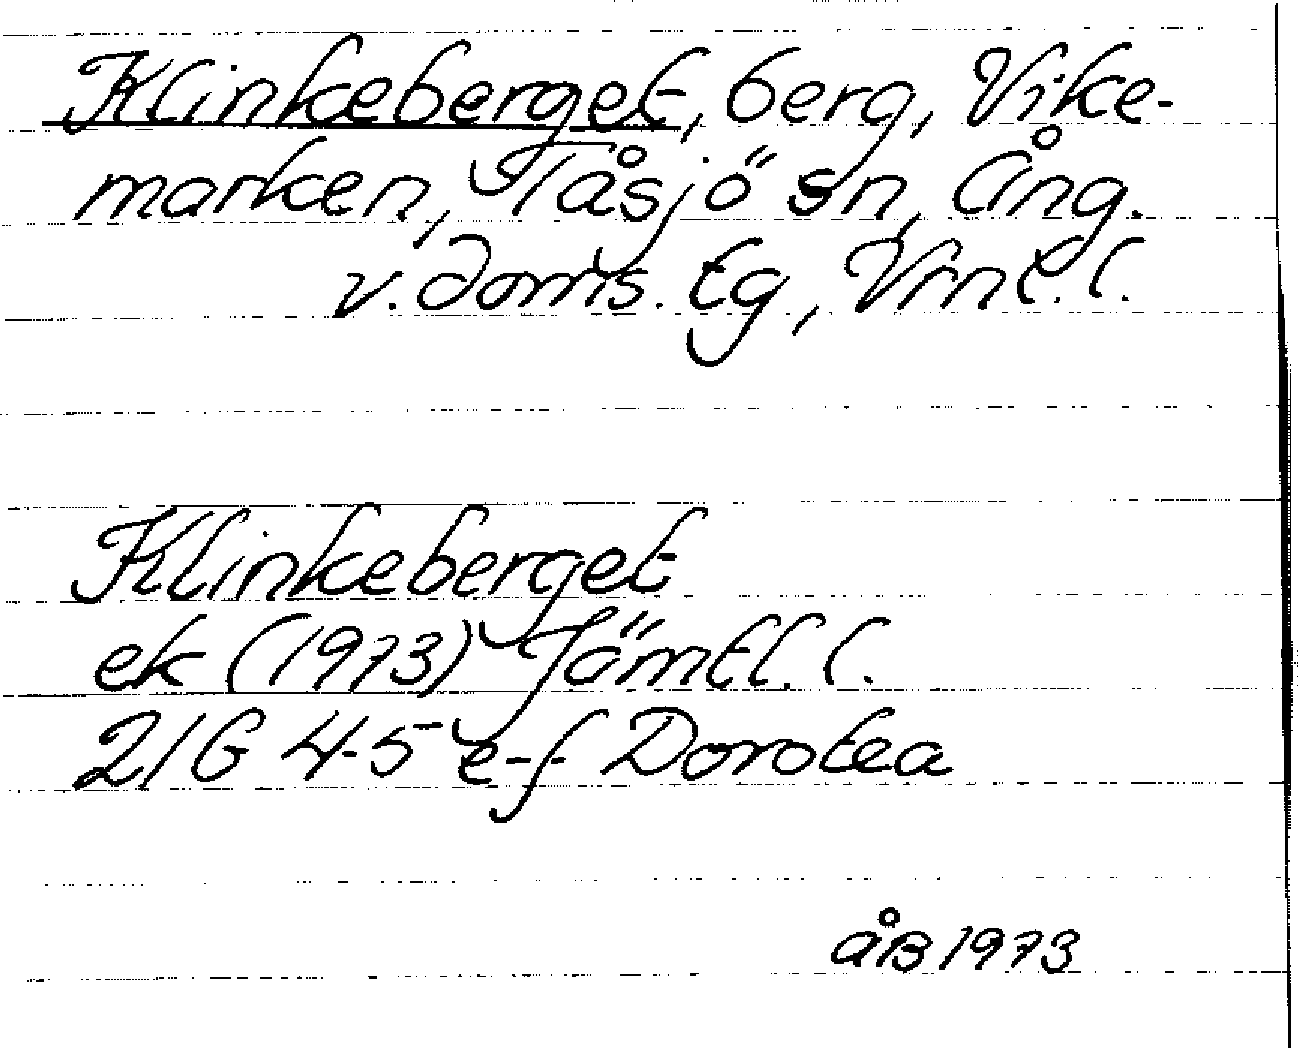 Klinkeberget, berg, Vike-
marken, Tåsjö sn, Ång.
v. doms. tg, Vrnl. l.
Klinkeberget
ek (1973) Jämtl. l.
21G 4-5 e-f Dorotea
åB 1973